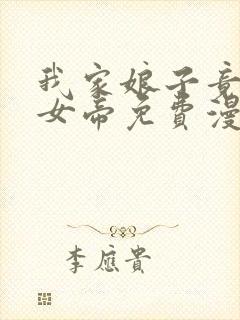 我家娘子竟
女帝免費漫
李應貴